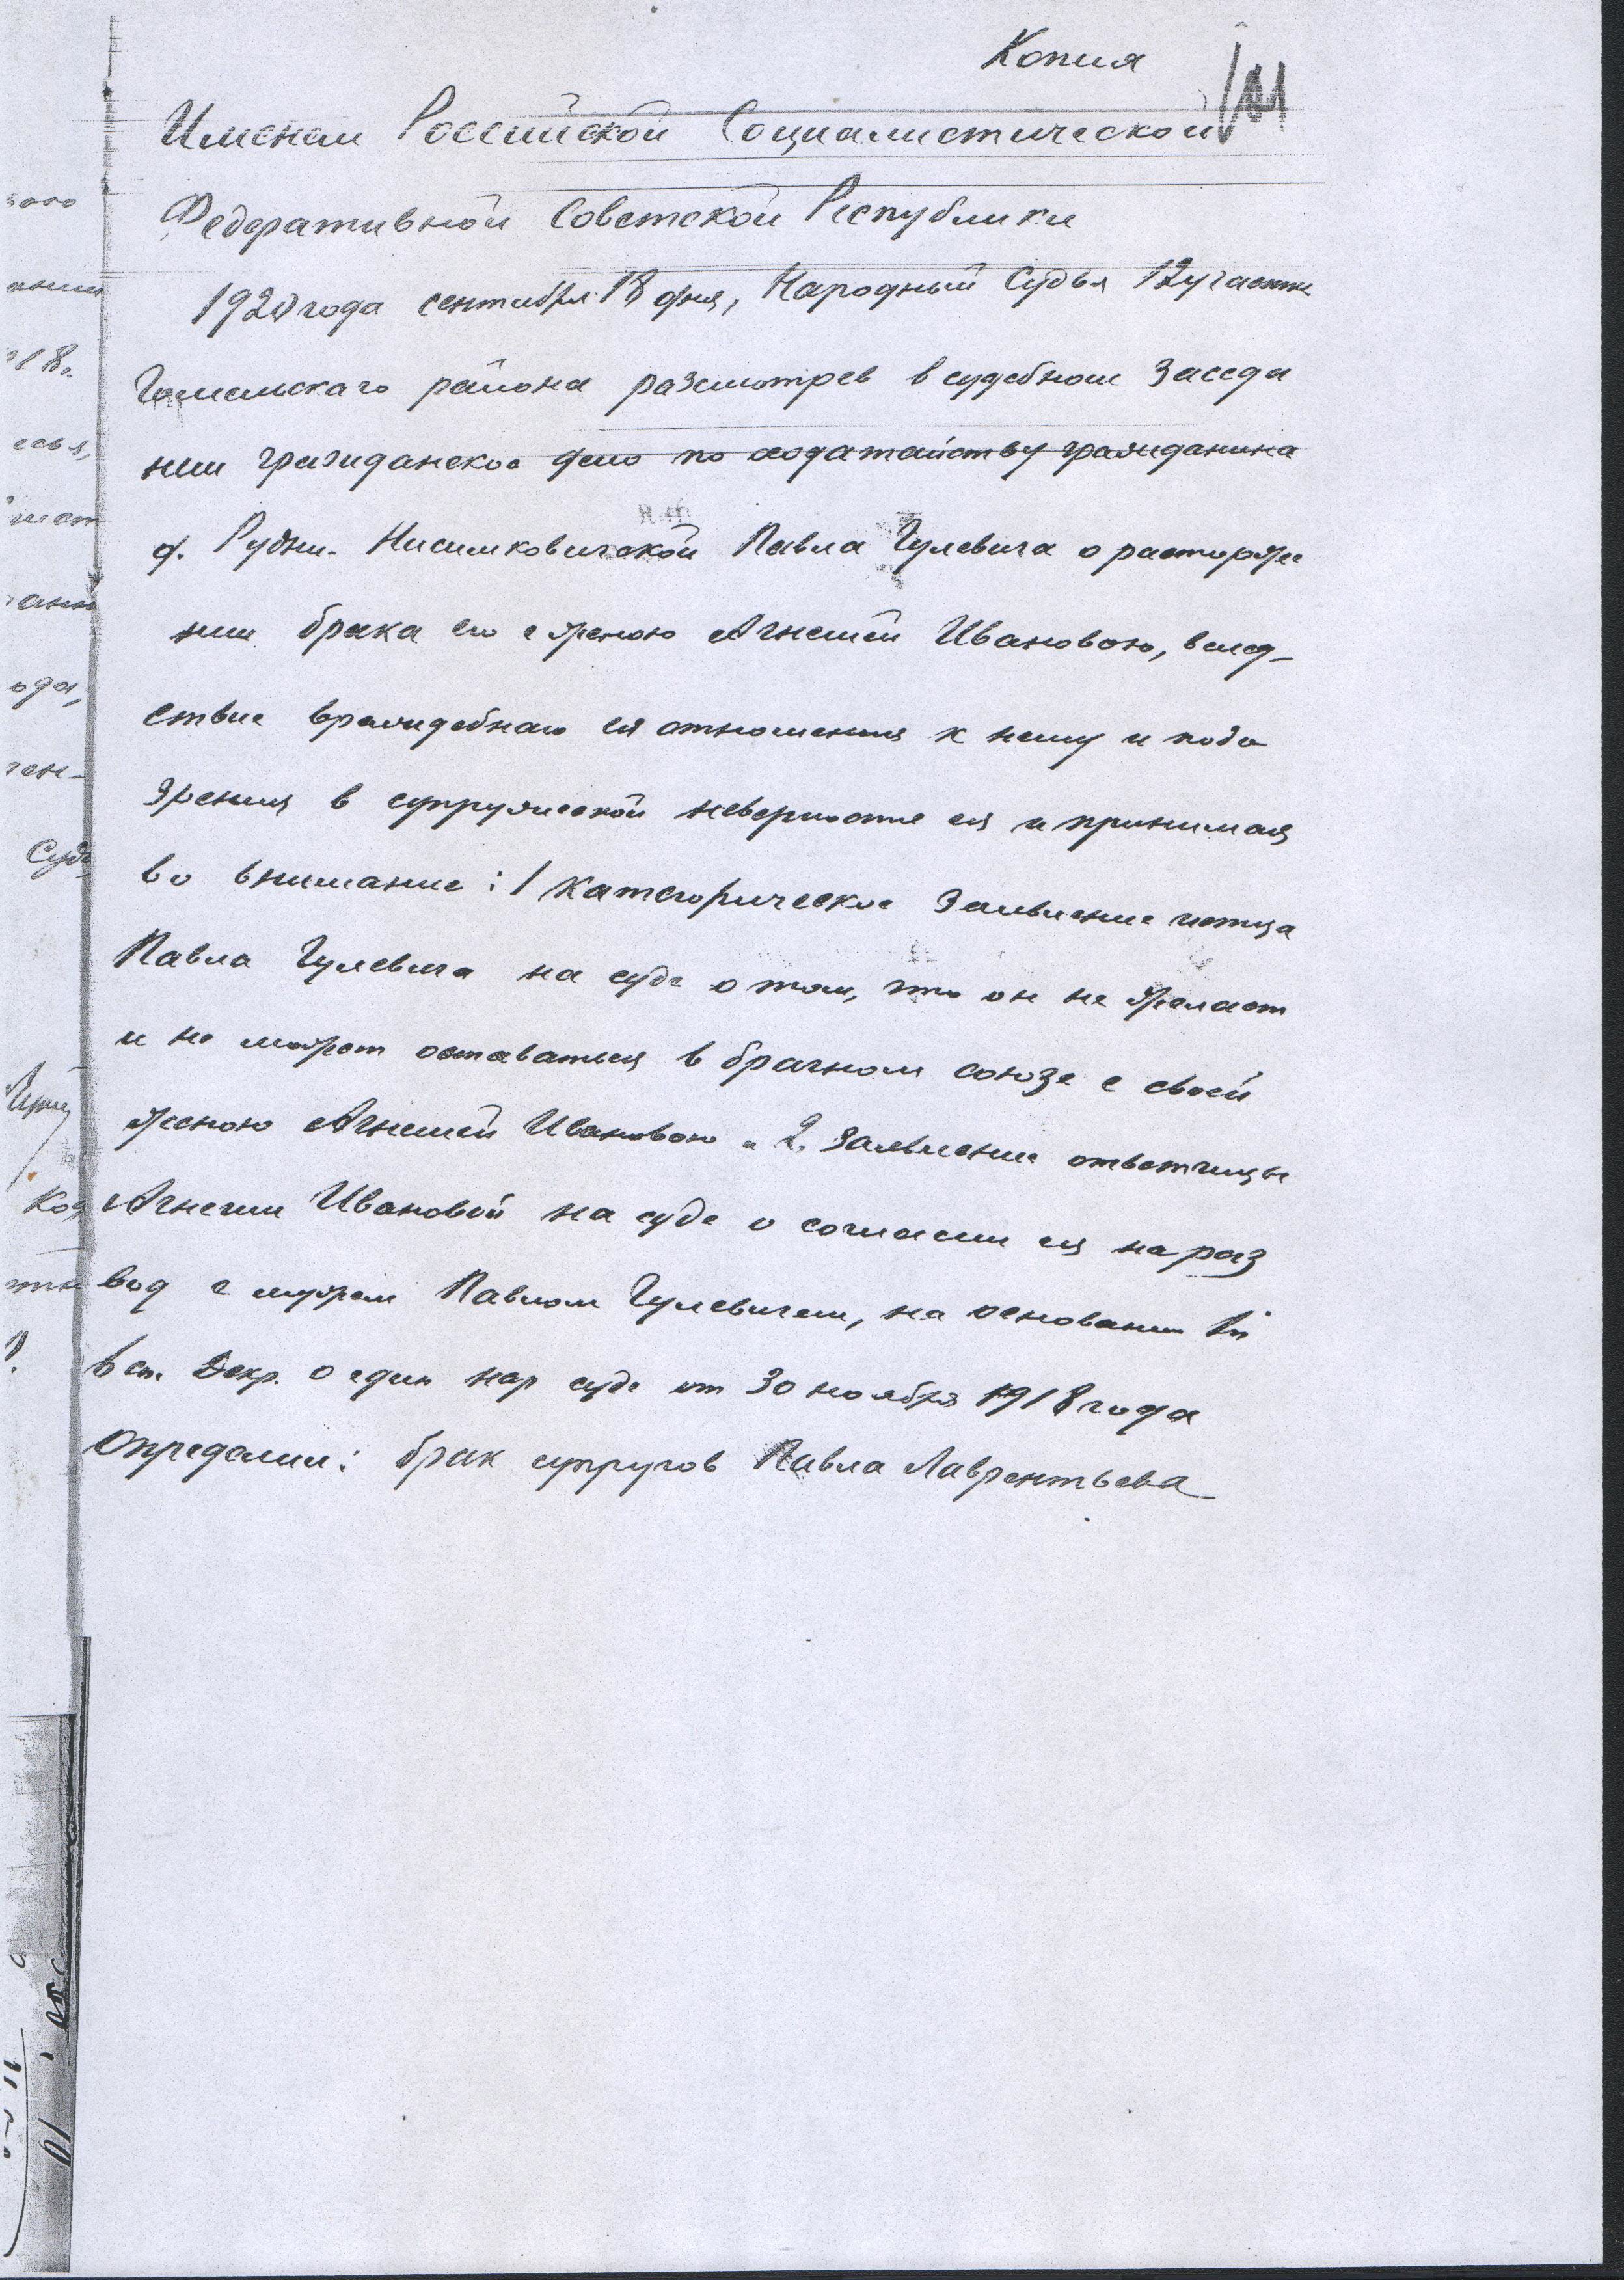 Копия
Именем Российской Социалистической
Федеративной Советской Республики
1920 года сентября 18 дня, Народный Судья 12 участка
Гомельскаго района разсмотрев в судебном заседа
нии гражданское дело по ходатайству гражданина
д. Рудни-Нисимковичской Павла Гулевича о расторже
нии брака его с женою Агнешей Ивановою, вслед-
ствие враждебнаго ея отношения к нему и подо
зрения в супружеской неверности ея и принимая
во внимание: 1 Категорическое заявление истца
Павла Гулевича на суде о том, что он не желает
и не может оставаться в брачном союзе с своей
женою Агнешей Ивановою и 2. Заявление ответчицы
Агнеши Ивановой на суде о согласии ея на раз
вод с мужем Павлом Гулевичем, на основании
ст. Декр. О един нар суде от 30 ноября 1918 года
Определил: брак супругов Павла Лаврентьева